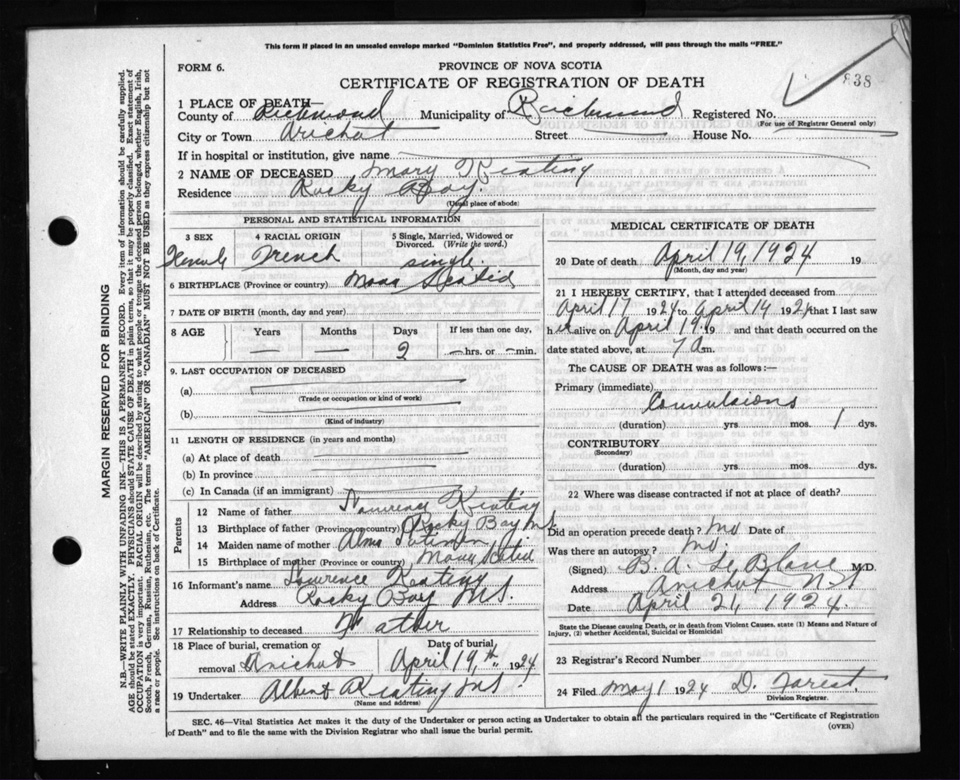 This form if placed in an unsealed envelope marked "Dominion Statistics Free", and properly addressed, will pass through the mails "FREE."
FORM 6.
PROVINCE OF NOVA SCOTIA
CERTIFICATE OF REGISTRATION OF DEATH
838
1 PLACE OF DEATH—
County of Richmond Municipality of Richmond Registered No.
(For use of Registrar General only)
City or Town Arichat Street House No.
If in hospital or institution, give name
2 NAME OF DECEASED Mary Keating
Residence Rocky Bay.
(Usual place of abode)
PERSONAL AND STATISTICAL INFORMATION
3 SEX 4 RACIAL ORIGIN 5 Single, Married, Widowed or Divorced. (Write the word.)
Female French single.
6 BIRTHPLACE (Province or country) Nova Scotia
7 DATE OF BIRTH (month, day and year)
8 AGE Years Months Days If less than one day,
— — 2 — hrs. or — min.
9. LAST OCCUPATION OF DECEASED
(a)
(Trade or occupation or kind of work)
(b)
(Kind of industry)
11 LENGTH OF RESIDENCE (in years and months)
(a) At place of death
(b) In province
(c) In Canada (if an immigrant)
Parents
12 Name of father Lawrence Keating
13 Birthplace of father (Province or country) Rocky Bay N.S.
14 Maiden name of mother Alma
15 Birthplace of mother (Province or country) Nova Scotia
16 Informant's name Lawrence Keating
Address Rocky Bay N.S.
17 Relationship to deceased Father
18 Place of burial, cremation or removal Arichat Date of burial, April 19th 1924
19 Undertaker Albert Keating N.S.
(Name and address)
MEDICAL CERTIFICATE OF DEATH
20 Date of death April 19, 1924 19
(Month, day and year)
21 I HEREBY CERTIFY, that I attended deceased from
April 17 1924 to April 19 1924 that I last saw
her alive on April 19. 19 and that death occurred on the
date stated above, at 7 a m.
The CAUSE OF DEATH was as follows:—
Primary (immediate)
Convulsions
(duration) yrs. mos. 1 dys.
CONTRIBUTORY
(Secondary)
(duration) yrs. mos. dys.
22 Where was disease contracted if not at place of death?
Did an operation precede death? No Date of
Was there an autopsy? No.
(Signed) B. A. LeBlanc M.D.
Address Arichat N.S.
Date April 21, 1924.
State the Disease causing Death, or in death from Violent Causes, state (1) Means and Nature of Injury, (2) whether Accidental, Suicidal or Homicidal
23 Registrar's Record Number
24 Filed May 1 1924 D. Forest
Division Registrar.
SEC. 46—Vital Statistics Act makes it the duty of the Undertaker or person acting as Undertaker to obtain all the particulars required in the "Certificate of Registration
of Death" and to file the same with the Division Registrar who shall issue the burial permit. (OVER)
MARGIN RESERVED FOR BINDING
N.B.—WRITE PLAINLY WITH UNFADING INK—THIS IS A PERMANENT RECORD. Every item of information should be carefully supplied.
AGE should be stated EXACTLY. PHYSICIANS should STATE CAUSE OF DEATH in plain terms, so that it may be properly classified. Exact statement of
OCCUPATION is very important. RACIAL ORIGIN will be described by stating to what people or tongue the deceased person belonged, whether English, Irish,
Scotch, French, German, Russian, Ruthenian, etc. The terms "AMERICAN" OR "CANADIAN" MUST NOT BE USED as they express citizenship but not
a race or people. See instructions on back of Certificate.